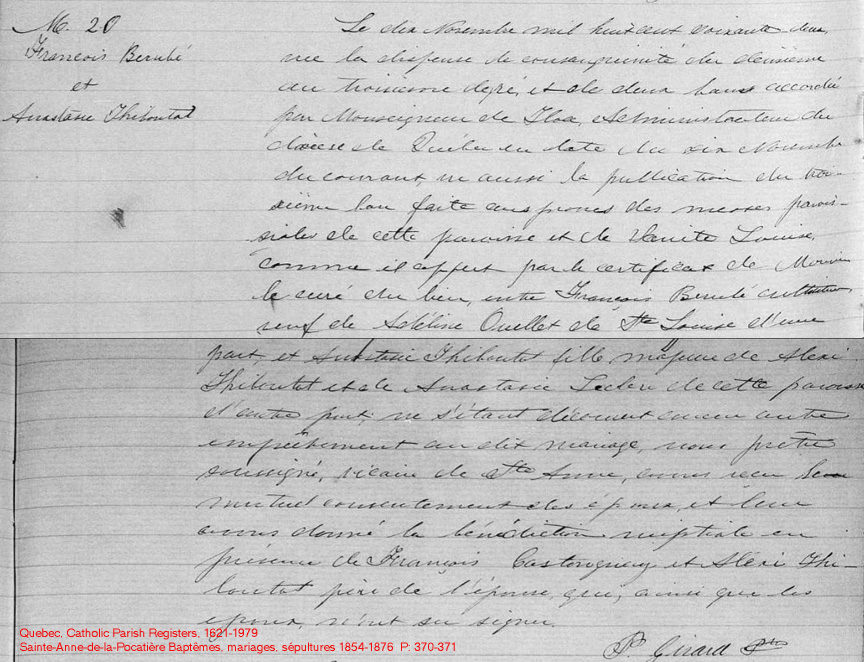 M. 20
François Berubé
et
Anastasie Thiboutot
Le dix Novembre mil huit cent soixante deux,
vu la dispense de consanguinité du deuxième
au troisieme degré, et de deux bans accordée
par Monseigneur de Tloa, Administrateur du
diocèse de Québec en date du six Novembre
du courant, vu aussi la publication du troi-
sième ban faite aux prones des messes parois-
siales de cette paroisse et de Sainte Louise,
comme il appert par le certificat de Monsieur
le curé du lieu, entre François Berubé cultivateur
veuf de Adéline Ouellet de Ste Louise d'une
part et Anastasie Thiboutot fille majeure de Alexi
Thiboutot et de Anastasie Leclerc de cette paroisse
d'autre part; ne s'étant découvert aucun autre
empêchement au dit mariage, nous prêtre
soussigné, vicaire de Ste Anne, avons reçu leur
mutuel consentement des époux, et leur
avons donné la bénédiction nuptiale en
présence de François Castonguay et Alexi Thi-
boutot père de l'épouse, qui, ainsi que les
époux, n'ont su signer.
P. Girard Ptre
Quebec, Catholic Parish Registers, 1621-1979
Sainte-Anne-de-la-Pocatière Baptêmes, mariages, sépultures 1854-1876 P: 370-371